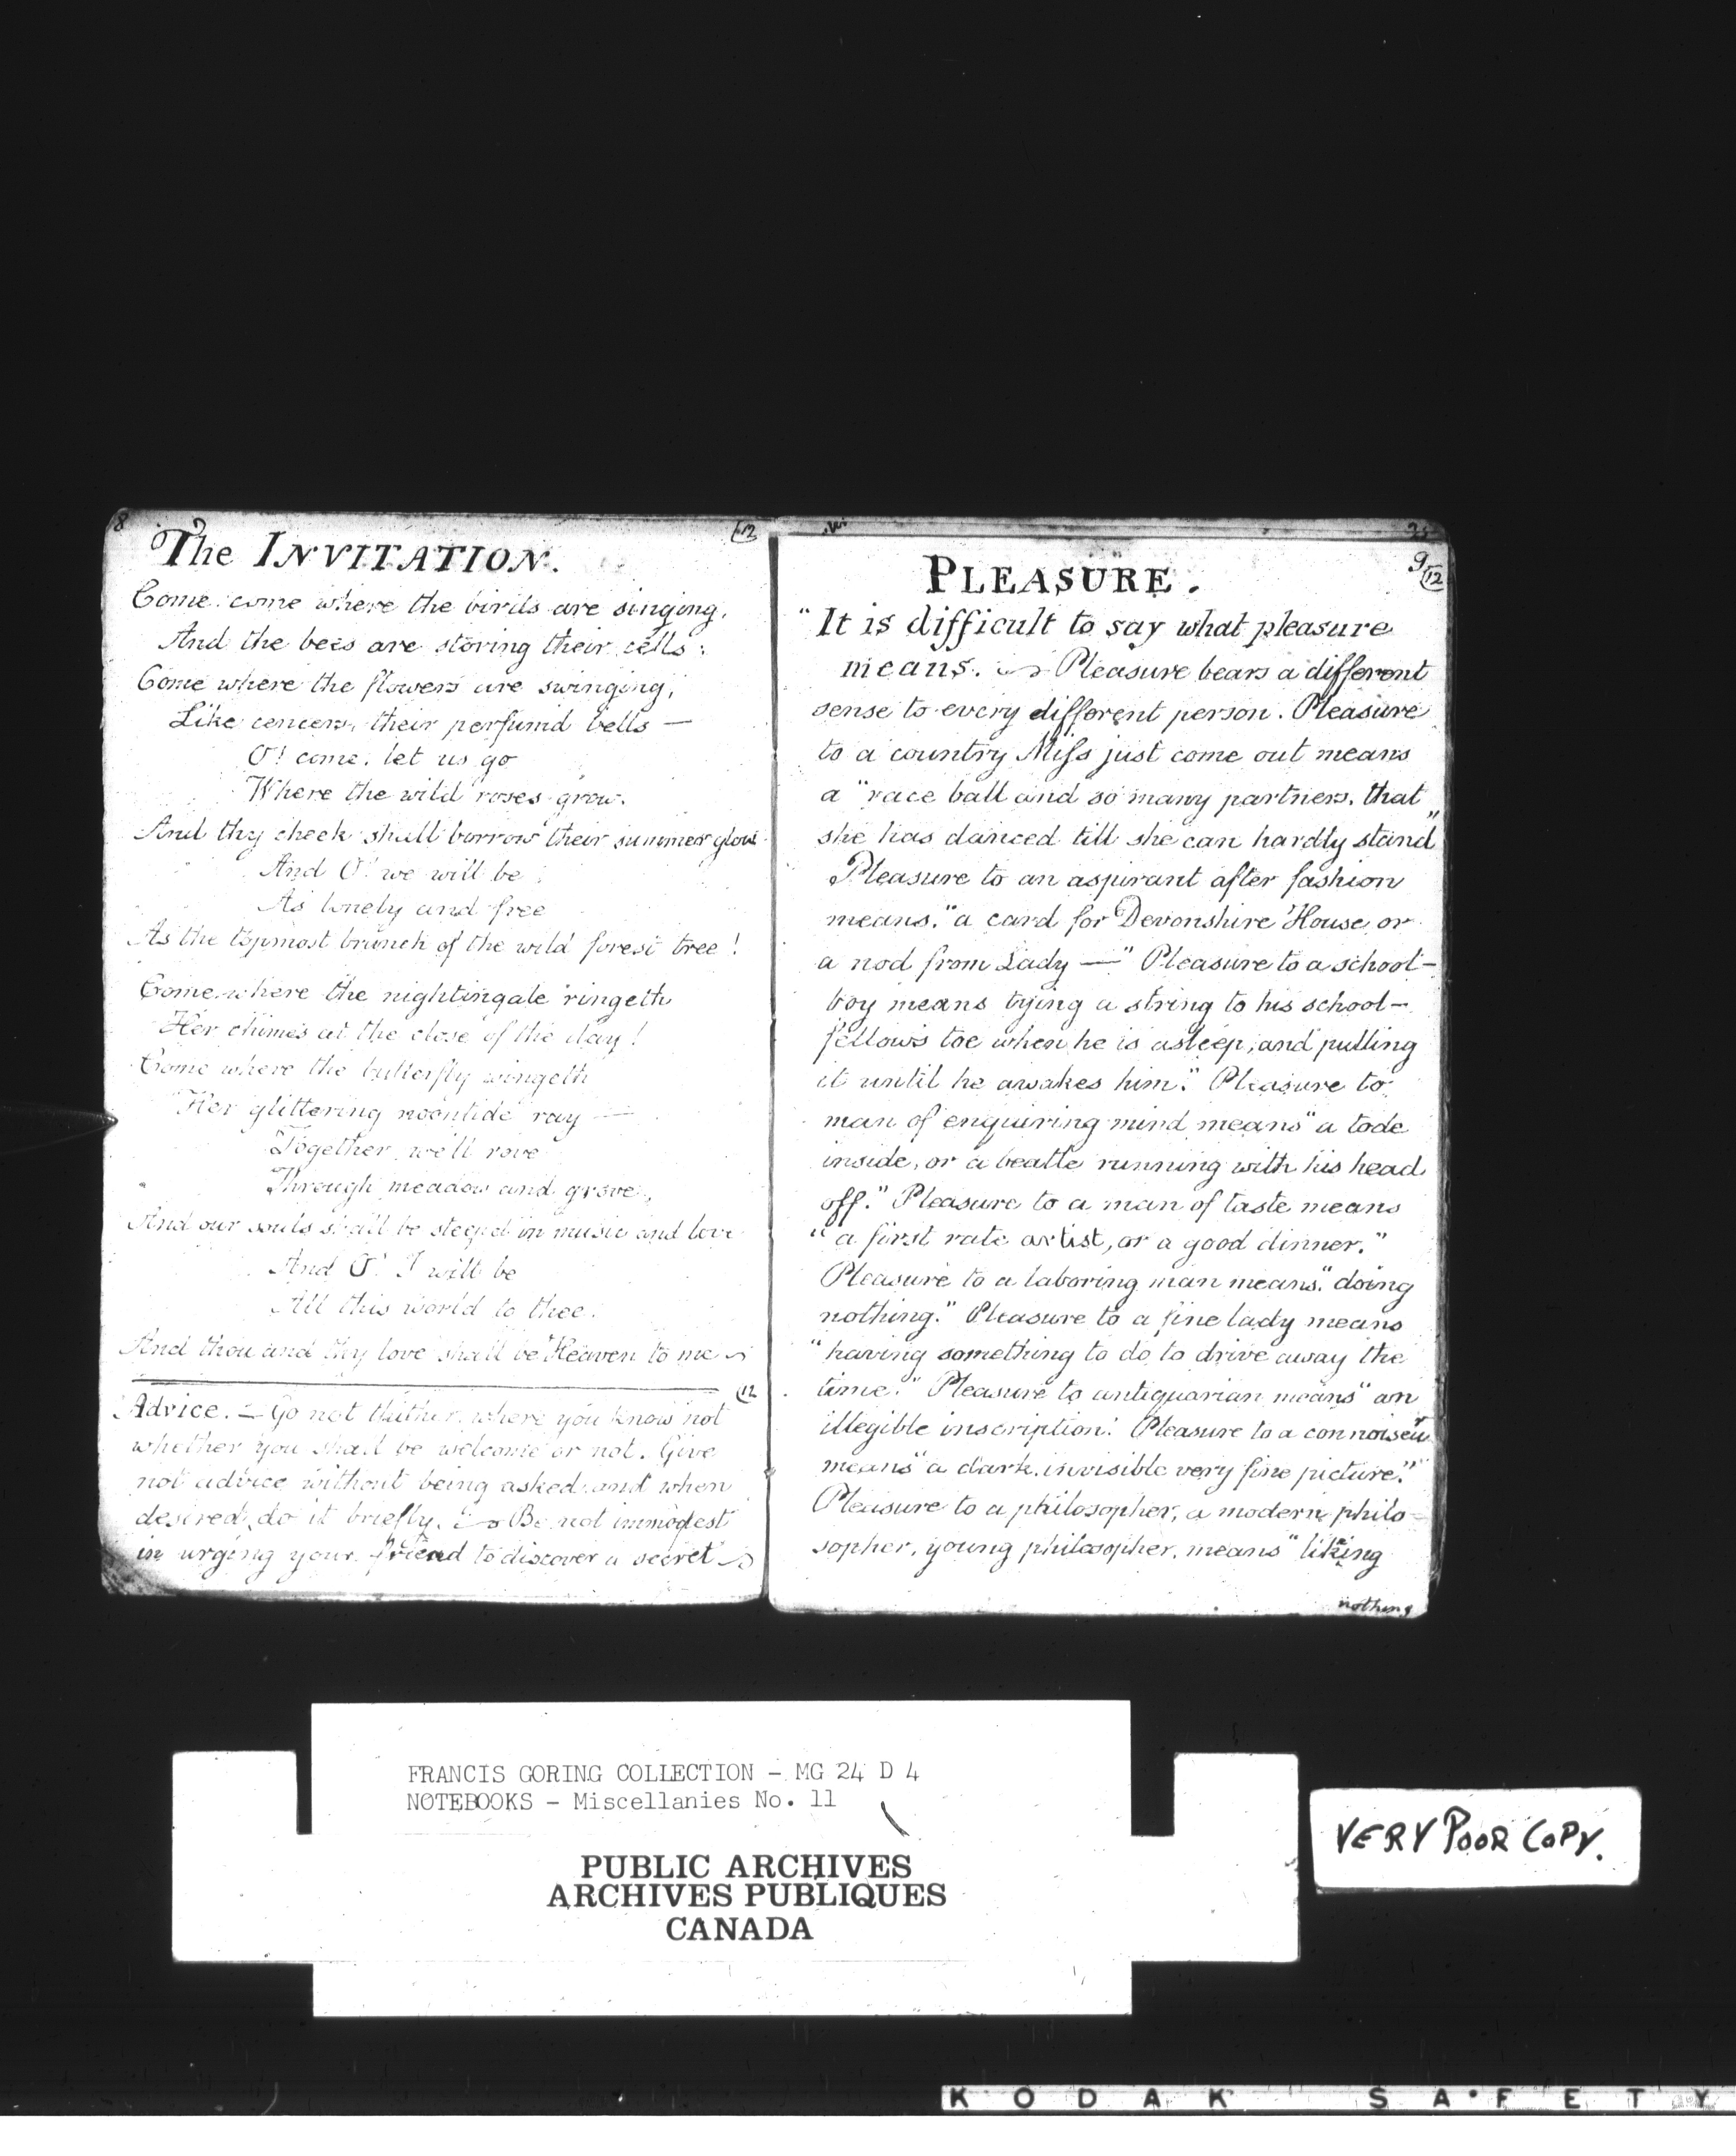 8
(12
The INVITATION.
Come come where the birds are singing,
And the bees are storing their cells:
Come where the flowers are swinging,
Like cencers, their perfumd bells —
O! come, let us go
Where the wild roses grow.
And thy cheek shall borrow their summer glow
And O! we will be
As lonely and free
As the topmost branch of the wild forest tree!
Come where the nightingale ringeth
Her chimes at the close of the day!
Come where the butterfly wingeth
Her glittering noontide ray —
Together we'll rove
Through meadow and grove,
And our souls shall be steep'd in music and love
And O! I will be
All this world to thee.
And thou and thy love shall be Heaven to me
(12
Advice. — Go not thither, where you know not
whether you shall be welcome or not. Give
not advice without being asked and when
desired, do it briefly. Be not immodest
in urging your friend to discover a secret
9
(12
PLEASURE.
"It is difficult to say what pleasure
means. Pleasure bears a different
sense to every different person. Pleasure
to a country Miss just come out means
a "race ball and so many partners, that
she has danced till she can hardly stand"
Pleasure to an aspirant after fashion
means, "a card for Devonshire House, or
a nod from Lady —" Pleasure to a school-
boy means tying a string to his school-
fellow's toe when he is asleep, and pulling
it until he awakes him." Pleasure to
man of enquiring mind means "a tode
inside, or a beatle running with his head
off." Pleasure to a man of taste means
"a first rate artist, or a good dinner."
Pleasure to a laboring man means, "doing
nothing." Pleasure to a fine lady means
"having something to do to drive away the
time." Pleasure to antiquarian means "an
illegible inscription." Pleasure to a connoiseur
means "a dark, invisible very fine picture."
Pleasure to a philosopher, a modern philo-
sopher, young philosopher, means "liking
nothing
FRANCIS GORING COLLECTION - MG 24 D 4
NOTEBOOKS - Miscellanies No. 11
PUBLIC ARCHIVES
ARCHIVES PUBLIQUES
CANADA
VERY POOR COPY.
KODAK SAFETY